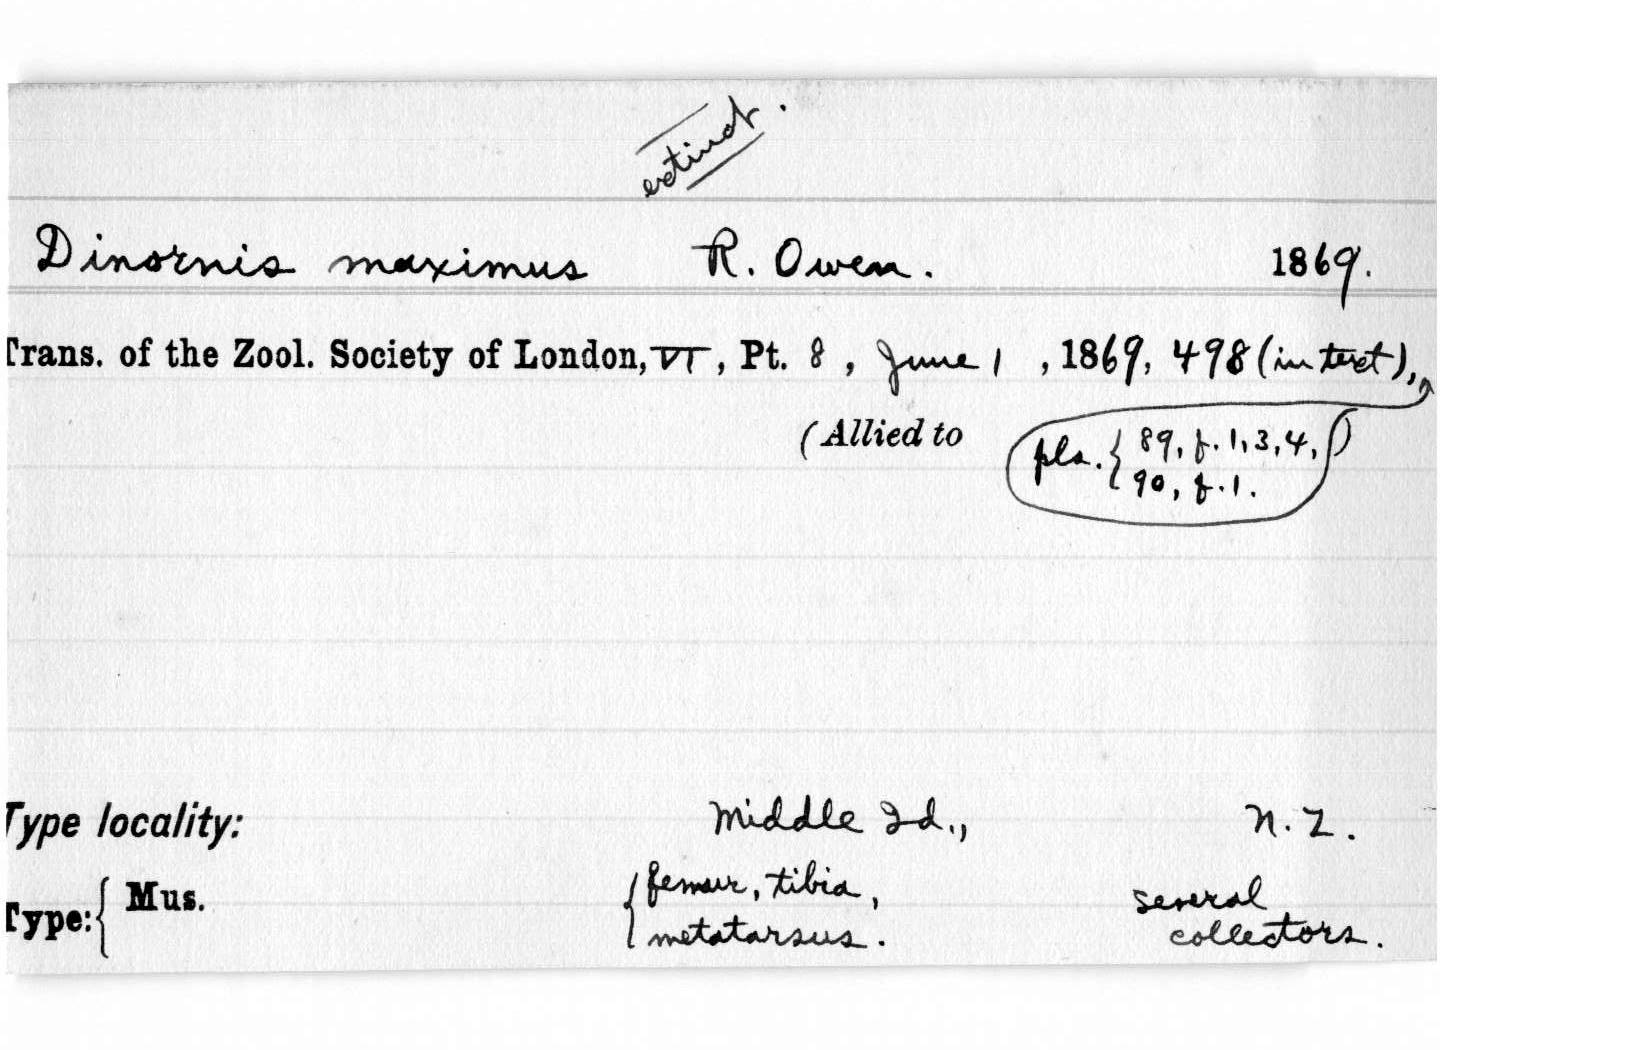 extinct.
Dinornis maximus R. Owen. 1869.
Trans. of the Zool. Society of London, VI, Pt. 8, June 1, 1869, 498 (in text),
(Allied to )
pls. { 89, f. 1, 3, 4,
90, f. 1.
Type locality: Middle Id., N. Z.
Type: { Mus. { femur, tibia, several
metatarsus. collectors.